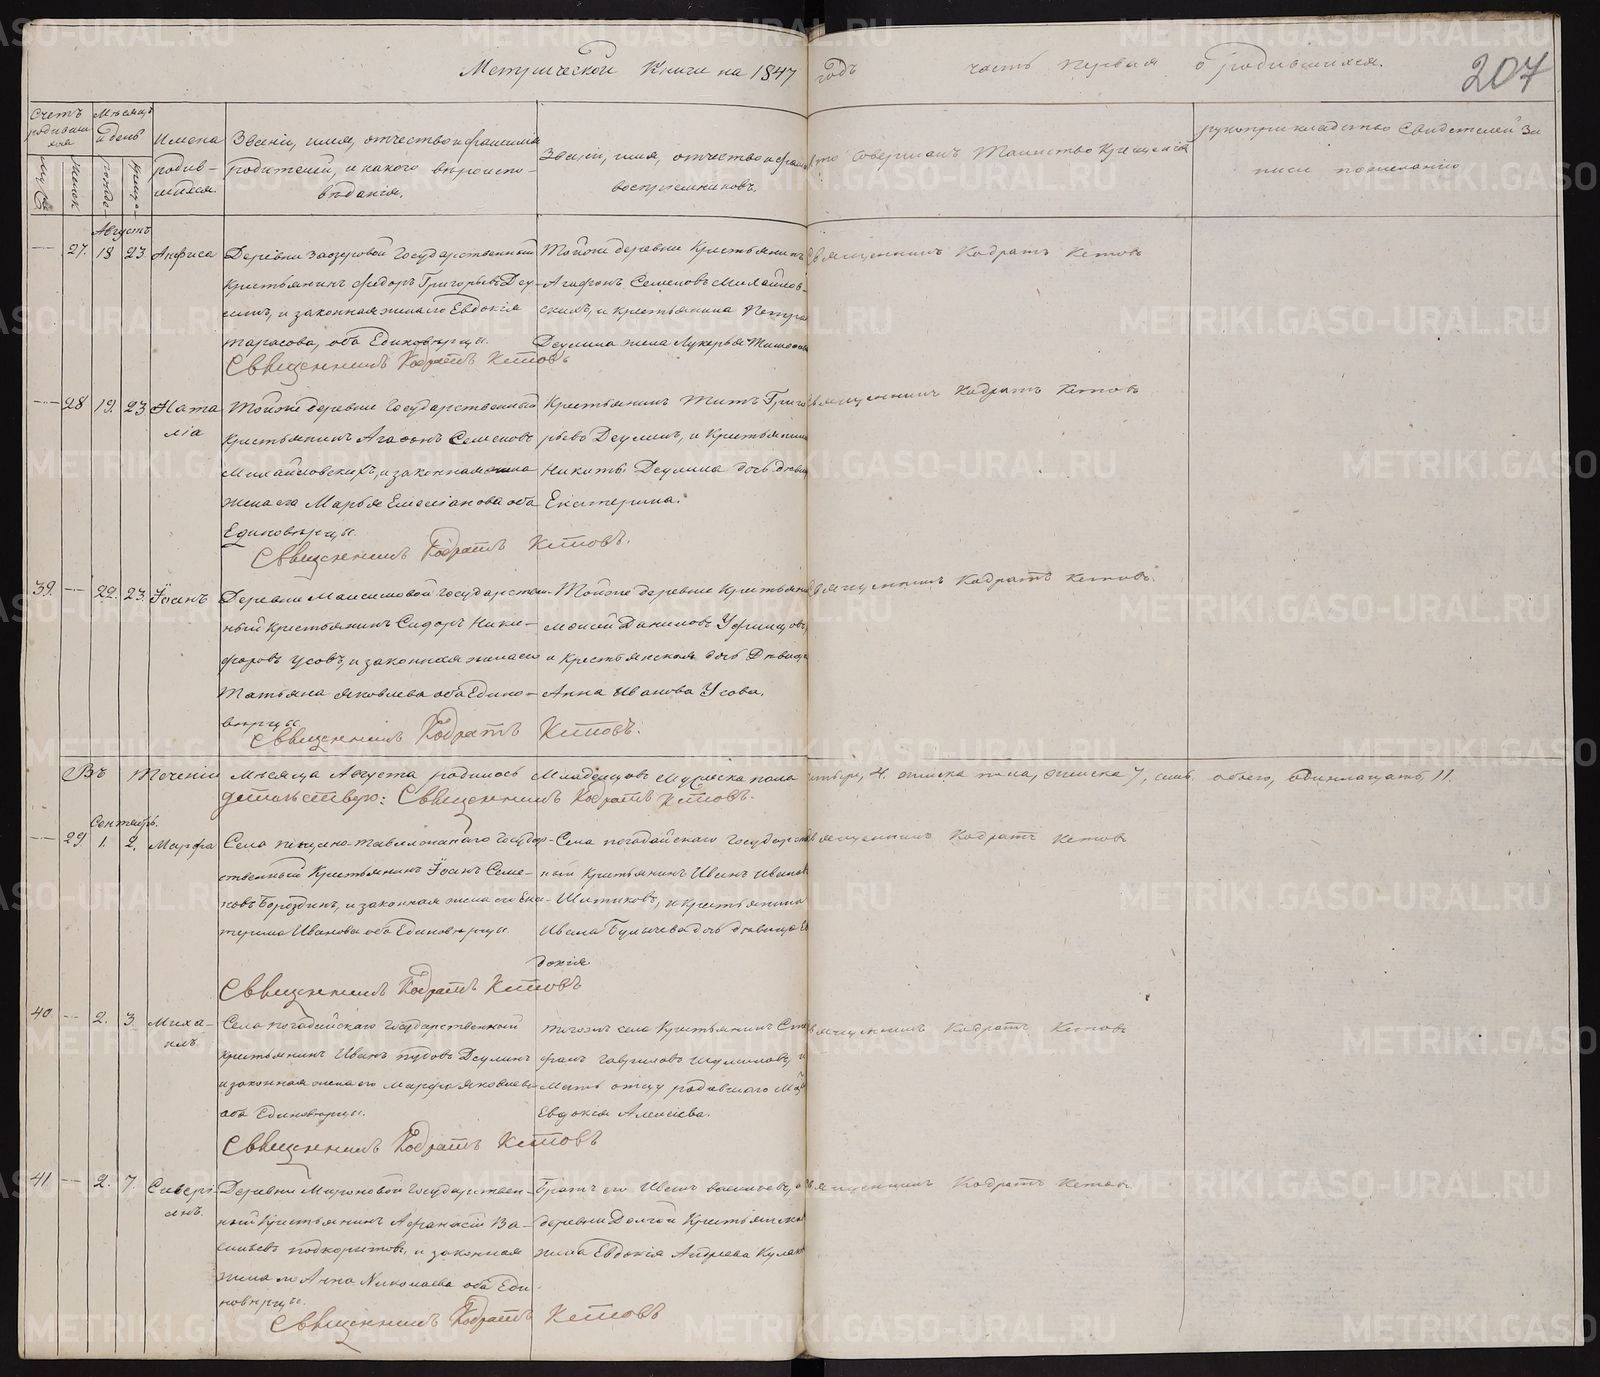 Метрической Книги на 1847 годъ часть первая о родившихся.
207
Счетъ родившихся
Мѣсяцъ и день
Имена родившихся.
Званіе, имя, отчество и фамилія
родителей, и какого вѣроиспо-
вѣданія.
Званіе, имя, отчество и фамилія
воспріемниковъ.
Кто совершалъ Таинство Крещенія
рукоприкладство свидѣтелей за
писи по желанію
Августъ
27. 18 23 Анфиса
Деревни Заозеровой Государственный
Крестьянинъ Федоръ Григорьевъ Деу-
линъ, и законная жена его Евдокія
Тарасова, оба Единовѣрцы.
Священникъ Кодратъ Кетовъ
Тойже деревни Крестьянинъ
Агафонъ Семеновъ Михайлов-
скихъ, и крестьянина Петра
Деулина жена Лукерья
Священникъ Кодратъ Кетовъ
28 19. 23 Ната
лія
Тойже деревни Государственный
Крестьянинъ Агафонъ Семеновъ
Михайловскихъ, и законная
жена его Марья Емеліанова оба
Единовѣрцы.
Священникъ Кодратъ Кетовъ.
Крестьянинъ Титъ Григо
рьевъ Деулинъ, и Крестьянина
Никиты Деулина дочь девица
Екатерина.
Священникъ Кодратъ Кетовъ
39. 22. 23. Іоанъ
Деревни Максимовой Государствен-
ный Крестьянинъ Сидоръ Ники-
форовъ Усовъ, и законная жена его
Татьяна Яковлева оба Едино-
вѣрцы.
Священникъ Кодратъ Кетовъ.
Тойже деревни Крестьянинъ
Моисей Даниловъ Уфинцовъ,
и Крестьянская дочь Дѣвица
Анна Иванова Усова.
Священникъ Кодратъ Кетовъ.
Въ теченіи мѣсяца Августа родилось Младенцовъ Мужеска пола 4. женска пола, женска 7, обоего, одиннадцать 11.
Священникъ Кодратъ Кетовъ.
Сентябрь.
29 1. 2. Марфа
Села Государ-
ственный Крестьянинъ Іоанъ Семе-
новъ Бороздинъ, и законная жена его Ека-
терина Иванова оба Единовѣрцы
Священникъ Кодратъ Кетовъ
Села погадайскаго Государствен
ный Крестьянинъ Иванъ Иванов
Шитиковъ, и крестьянина
Ивана Булычева дочь дѣвица Ев
докія
Священникъ Кодратъ Кетовъ
40 2. 3 Миха-
илъ
Села погадайскаго Государственный
крестьянинъ Иванъ Деулинъ
и законная жена его Марфа Яковлева
оба Единовѣрцы.
Священникъ Кодратъ Кетовъ
тогожъ села Крестьянинъ Сте
фанъ Гавриловъ Шумиловъ, и
Мать отцу родившаго
Евдокія Алексіева.
Священникъ Кодратъ Кетовъ
41 2. 7. Севері-
янъ.
Деревни Мароновой Государствен-
ный Крестьянинъ Афанасій Ва-
сильевъ Подкорытовъ, и законная
жена его Анна Николаева оба Еди-
новѣрцы.
Священникъ Кодратъ Кетовъ
Братъ его Иванъ Васильевъ, и
деревни Долгой Крестьянская
жена Евдокія Андреева
Священникъ Кодратъ Кетовъ
METRIKI.GASO-URAL.RU